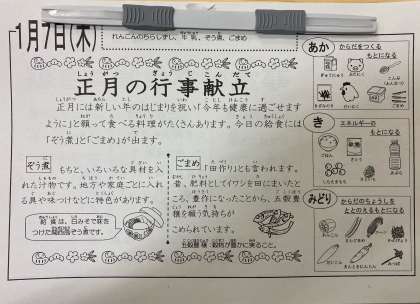 1月7日(木)
れんこんのちらしずし、牛乳、ぞう煮、ごまめ
正月の行事献立
正月には新しい年のはじまりを祝い「今年も健康に過ごせます
ように」と願って食べる料理がたくさんあります。今日の給食には
「ぞう煮」と「ごまめ」が出ます。
ぞう煮
もちと、いろいろな具材を入
れた汁物です。地方や家庭ごとに入れ
る具や味つけなどに特色があります。
給食は、白みそで味を
つけた関西風ぞう煮です。
ごまめ
「田作り」とも言われます。
昔、肥料としてイワシを田にまいたと
ころ、豊作になったことから、五穀豊
穣を願う気持ちが
こめられています。
五穀豊穣:穀物が豊かに実ること。
あか
からだをつくる
もとになる
ぎゅうにゅう
き
エネルギーの
もとになる
みどり
からだのちょうしを
ととのえるもとになる